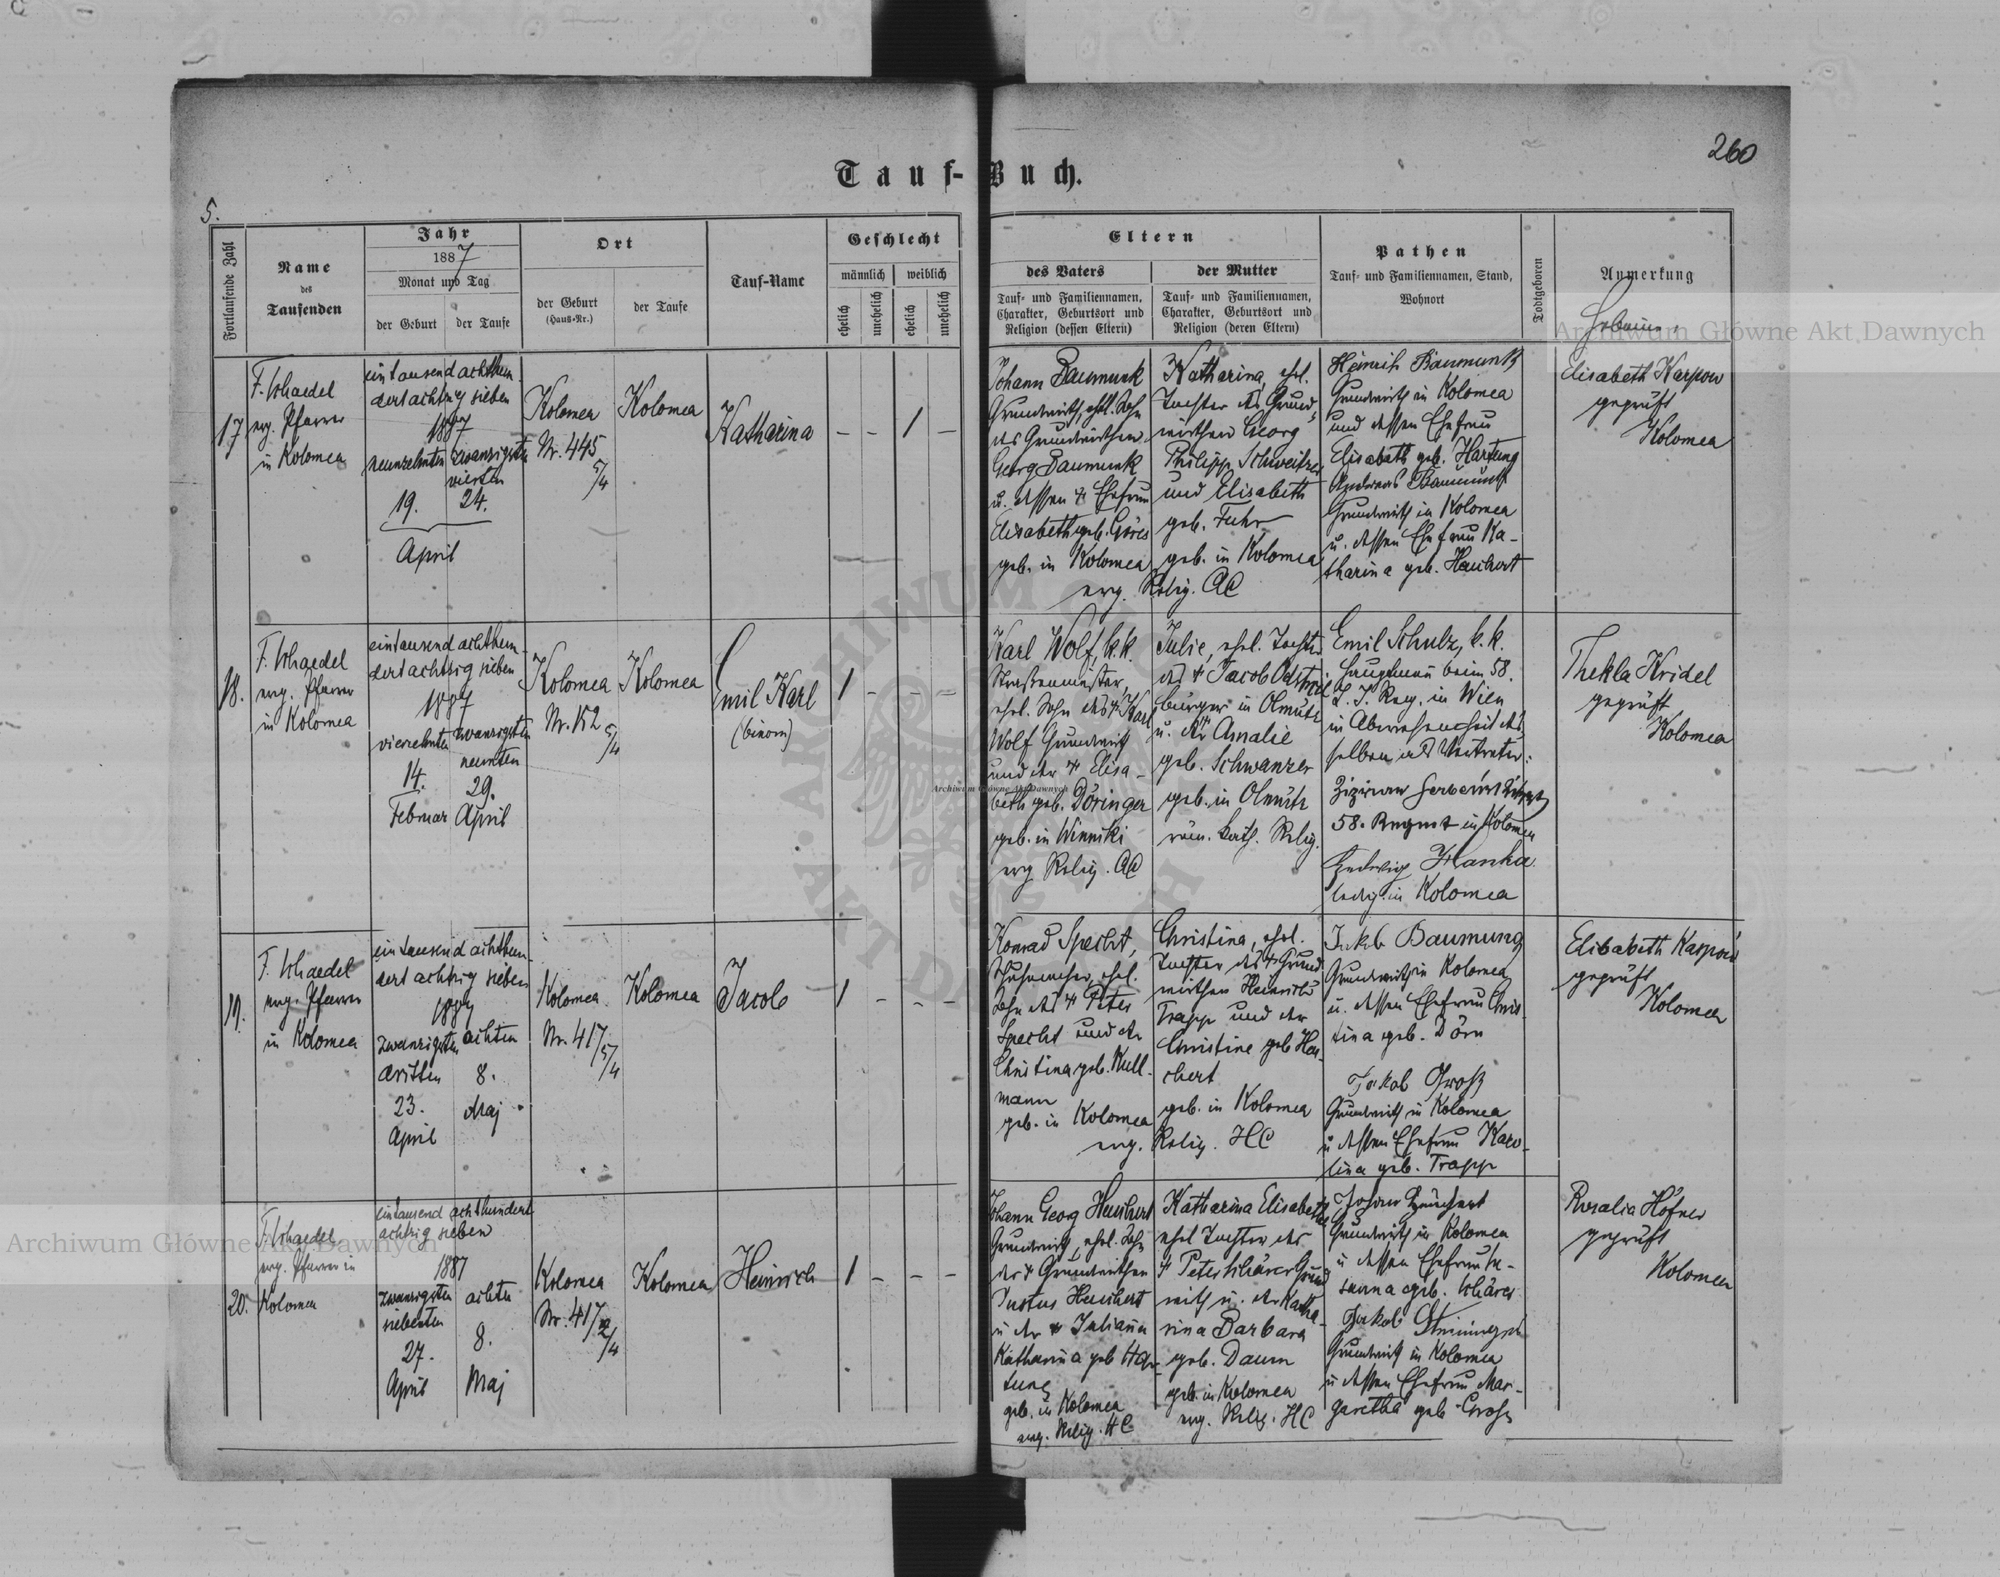 260
Tauf-Buch.
5.
Fortlaufende Zahl
Name
des
Taufenden
Jahr
1887
Monat und Tag
der Geburt
der Taufe
Ort
der Geburt
(Hauß-Nr.)
der Taufe
Tauf-Name
Geschlecht
männlich
weiblich
ehelich
unehelich
ehelich
unehelich
Eltern
des Vaters
Tauf- und Familiennamen,
Charakter, Geburtsort und
Religion (dessen Eltern)
der Mutter
Tauf- und Familiennamen,
Charakter, Geburtsort und
Religion (deren Eltern)
Pathen
Tauf- und Familiennamen, Stand,
Wohnort
Todtgeboren
Anmerkung
17
F. Schaedel
evg. Pfarrer
in Kolomea
eintausend achthun-
dert achtzig sieben
1887
neunzehnten
19.
zwanzigsten
vierten
24.
April
Kolomea
Nr. 445
5/4
Kolomea
Katharina
– – 1 –
Johann Baumunk
Grundwirth, ehl. Sohn
des Grundwirthen
Georg Baumunk
u. dessen † Ehefrau
Elisabeth geb.
geb. in Kolomea
Katharina, ehel.
Tochter des Grund-
wirthen Georg
Philipp Schweitzer
und Elisabeth
geb. Fuhr
geb. in Kolomea
evg. Relig. AC
Heinrich Baumunk
Grundwirth in Kolomea
und dessen Ehefrau
Elisabeth geb. Hartung
Andreas Baumunk
Grundwirth in Kolomea
u. dessen Ehefrau Ka-
tharina geb. Heuchert
Elisabeth Karpow
geprüft
Kolomea
18.
F. Schaedel
evg. Pfarrer
in Kolomea
eintausend achthun-
dert achtzig sieben
1887
vierzehnten
14.
Februar
zwanzigsten
neunten
29.
April
Kolomea
Nr. 152
5/4
Kolomea
Emil Karl
(binom)
1 – – –
Karl Wolf, k.k.
Strassenmeister,
ehel. Sohn des † Karl
Wolf Grundwirth
und der † Elisa-
beth geb. Döringer
geb. in Winniki
evg Relig. AC
Julie, ehel. Tochter
des † Jacob
Bürger in Olmütz
u. der Amalie
geb. Schwanzer
geb. in Olmütz
röm. kath. Relig.
Emil Schulz, k.k.
Hauptmann beim 58.
L. I. Reg. in Wien
in Abwesenheit des-
selben als Vertreter:
58. Regmt in Kolomea
Hedwig Hanka
ledig in Kolomea
Thekla Kridel
geprüft
Kolomea
19.
F. Schaedel
evg. Pfarrer
in Kolomea
eintausend achthun-
dert achtzig sieben
1887
zwanzigsten
dritten
23.
April
achten
8.
Maj
Kolomea
Nr. 417
5/4
Kolomea
Jacob
1 – – –
Konrad Specht,
Schuhmacher, ehel.
Sohn des † Peter
Specht und der
Christina geb. Kull-
mann
geb. in Kolomea
Christina, ehel.
Tochter des † Grund-
wirthen Heinrich
Trapp und der
Christine geb Heu-
chert
geb. in Kolomea
evg. Relig. HC
Jakob Baumung
Grundwirth in Kolomea
u. dessen Ehefrau Chris-
tina geb. Dörn
Jakob Groß
Grundwirth in Kolomea
u dessen Ehefrau Karo-
lina geb. Trapp
Elisabeth Karpow
geprüft
Kolomea
20.
F. Schaedel
evg. Pfarrer in
Kolomea
eintausend achthundert
achtzig sieben
1887
zwanzigsten
siebenten
27.
April
achten
8.
Maj
Kolomea
Nr. 417
Kolomea
Heinrich
1 – – –
Johann Georg Heuchert
Grundwirth, ehel. Sohn
des † Grundwirthen
Justus Heuchert
u der † Juliana
Katharina geb Har-
tung
geb. in Kolomea
evg. Relig. HC
Katharina Elisabetha
ehel Tochter des
† Peter Schärer Grund-
wirth u. der Katha-
rina Barbara
geb. Daum
geb. in Kolomea
evg. Relig. HC
Johann Heuchert
Grundwirth in Kolomea
u dessen Ehefrau Su-
sanna geb. Schärer
Jakob
Grundwirth in Kolomea
u dessen Ehefrau Mar-
garetha geb. Groß
Rosalia Höfner
geprüft
Kolomea
Archiwum Główne Akt Dawnych
Archiwum Główne Akt Dawnych
Archiwum Główne Akt Dawnych